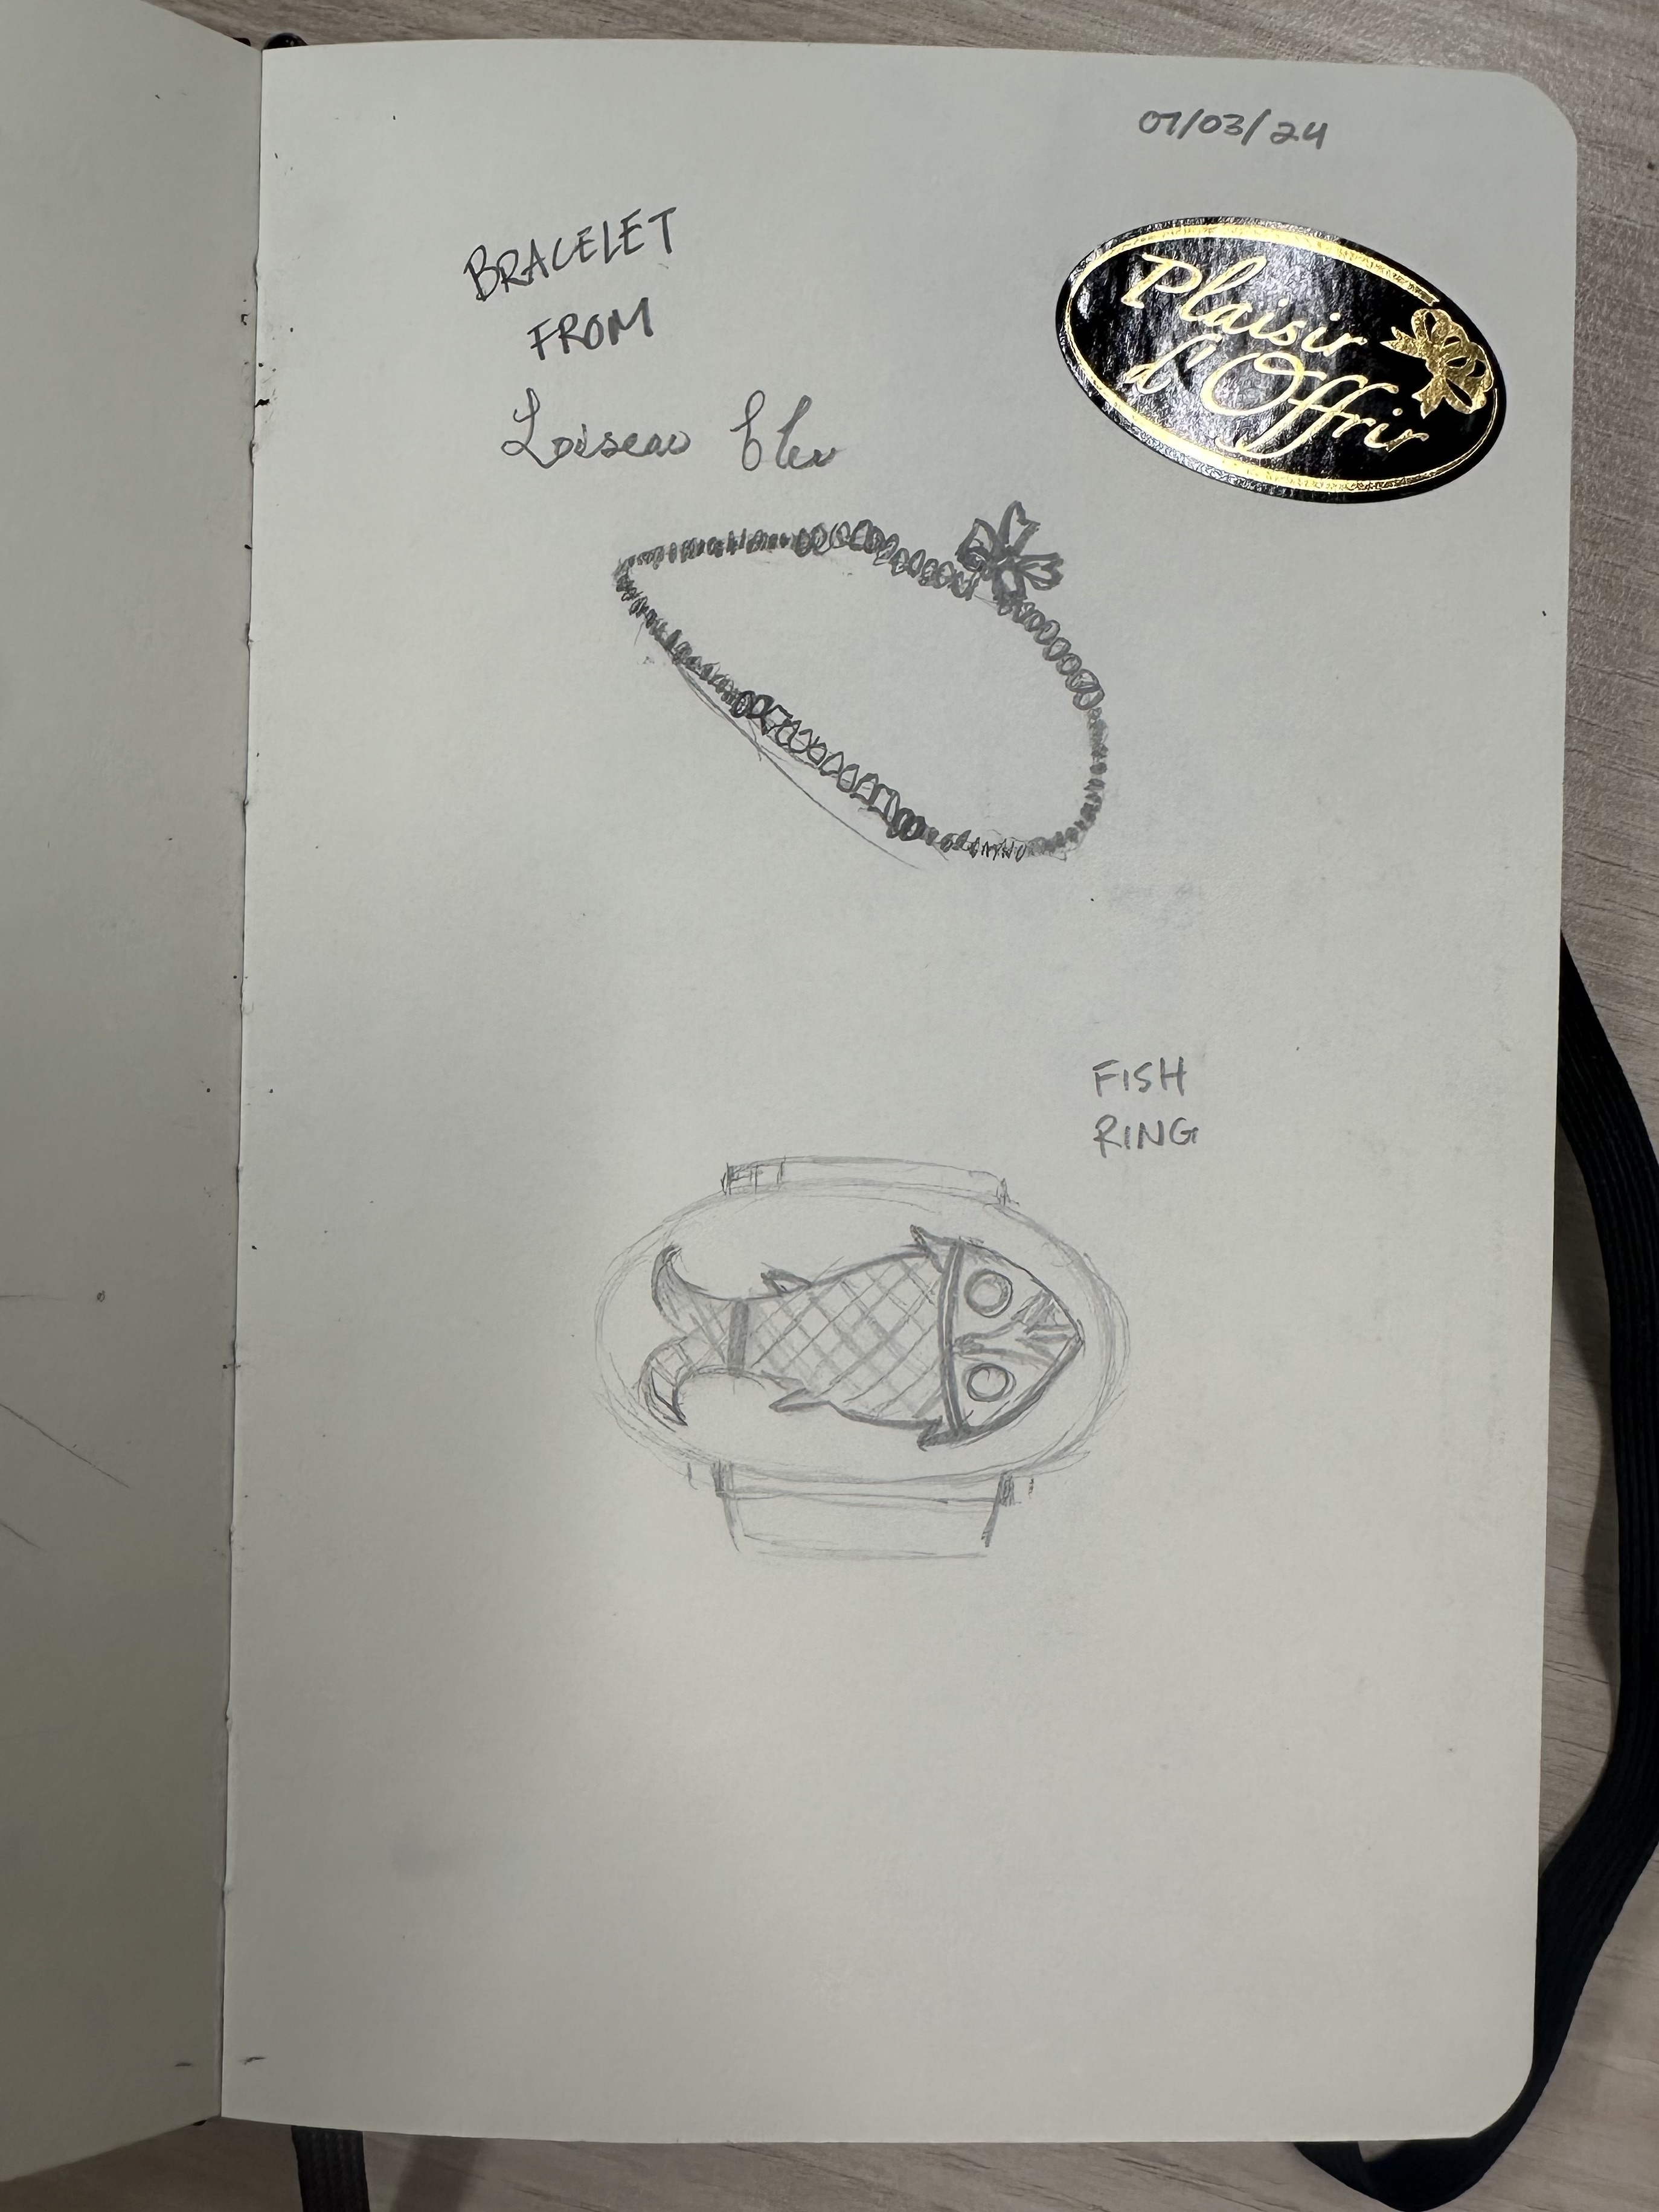 07/03/24
BRACELET
FROM
Loiseau bleu
Plaisir
d'Offrir
FISH
RING